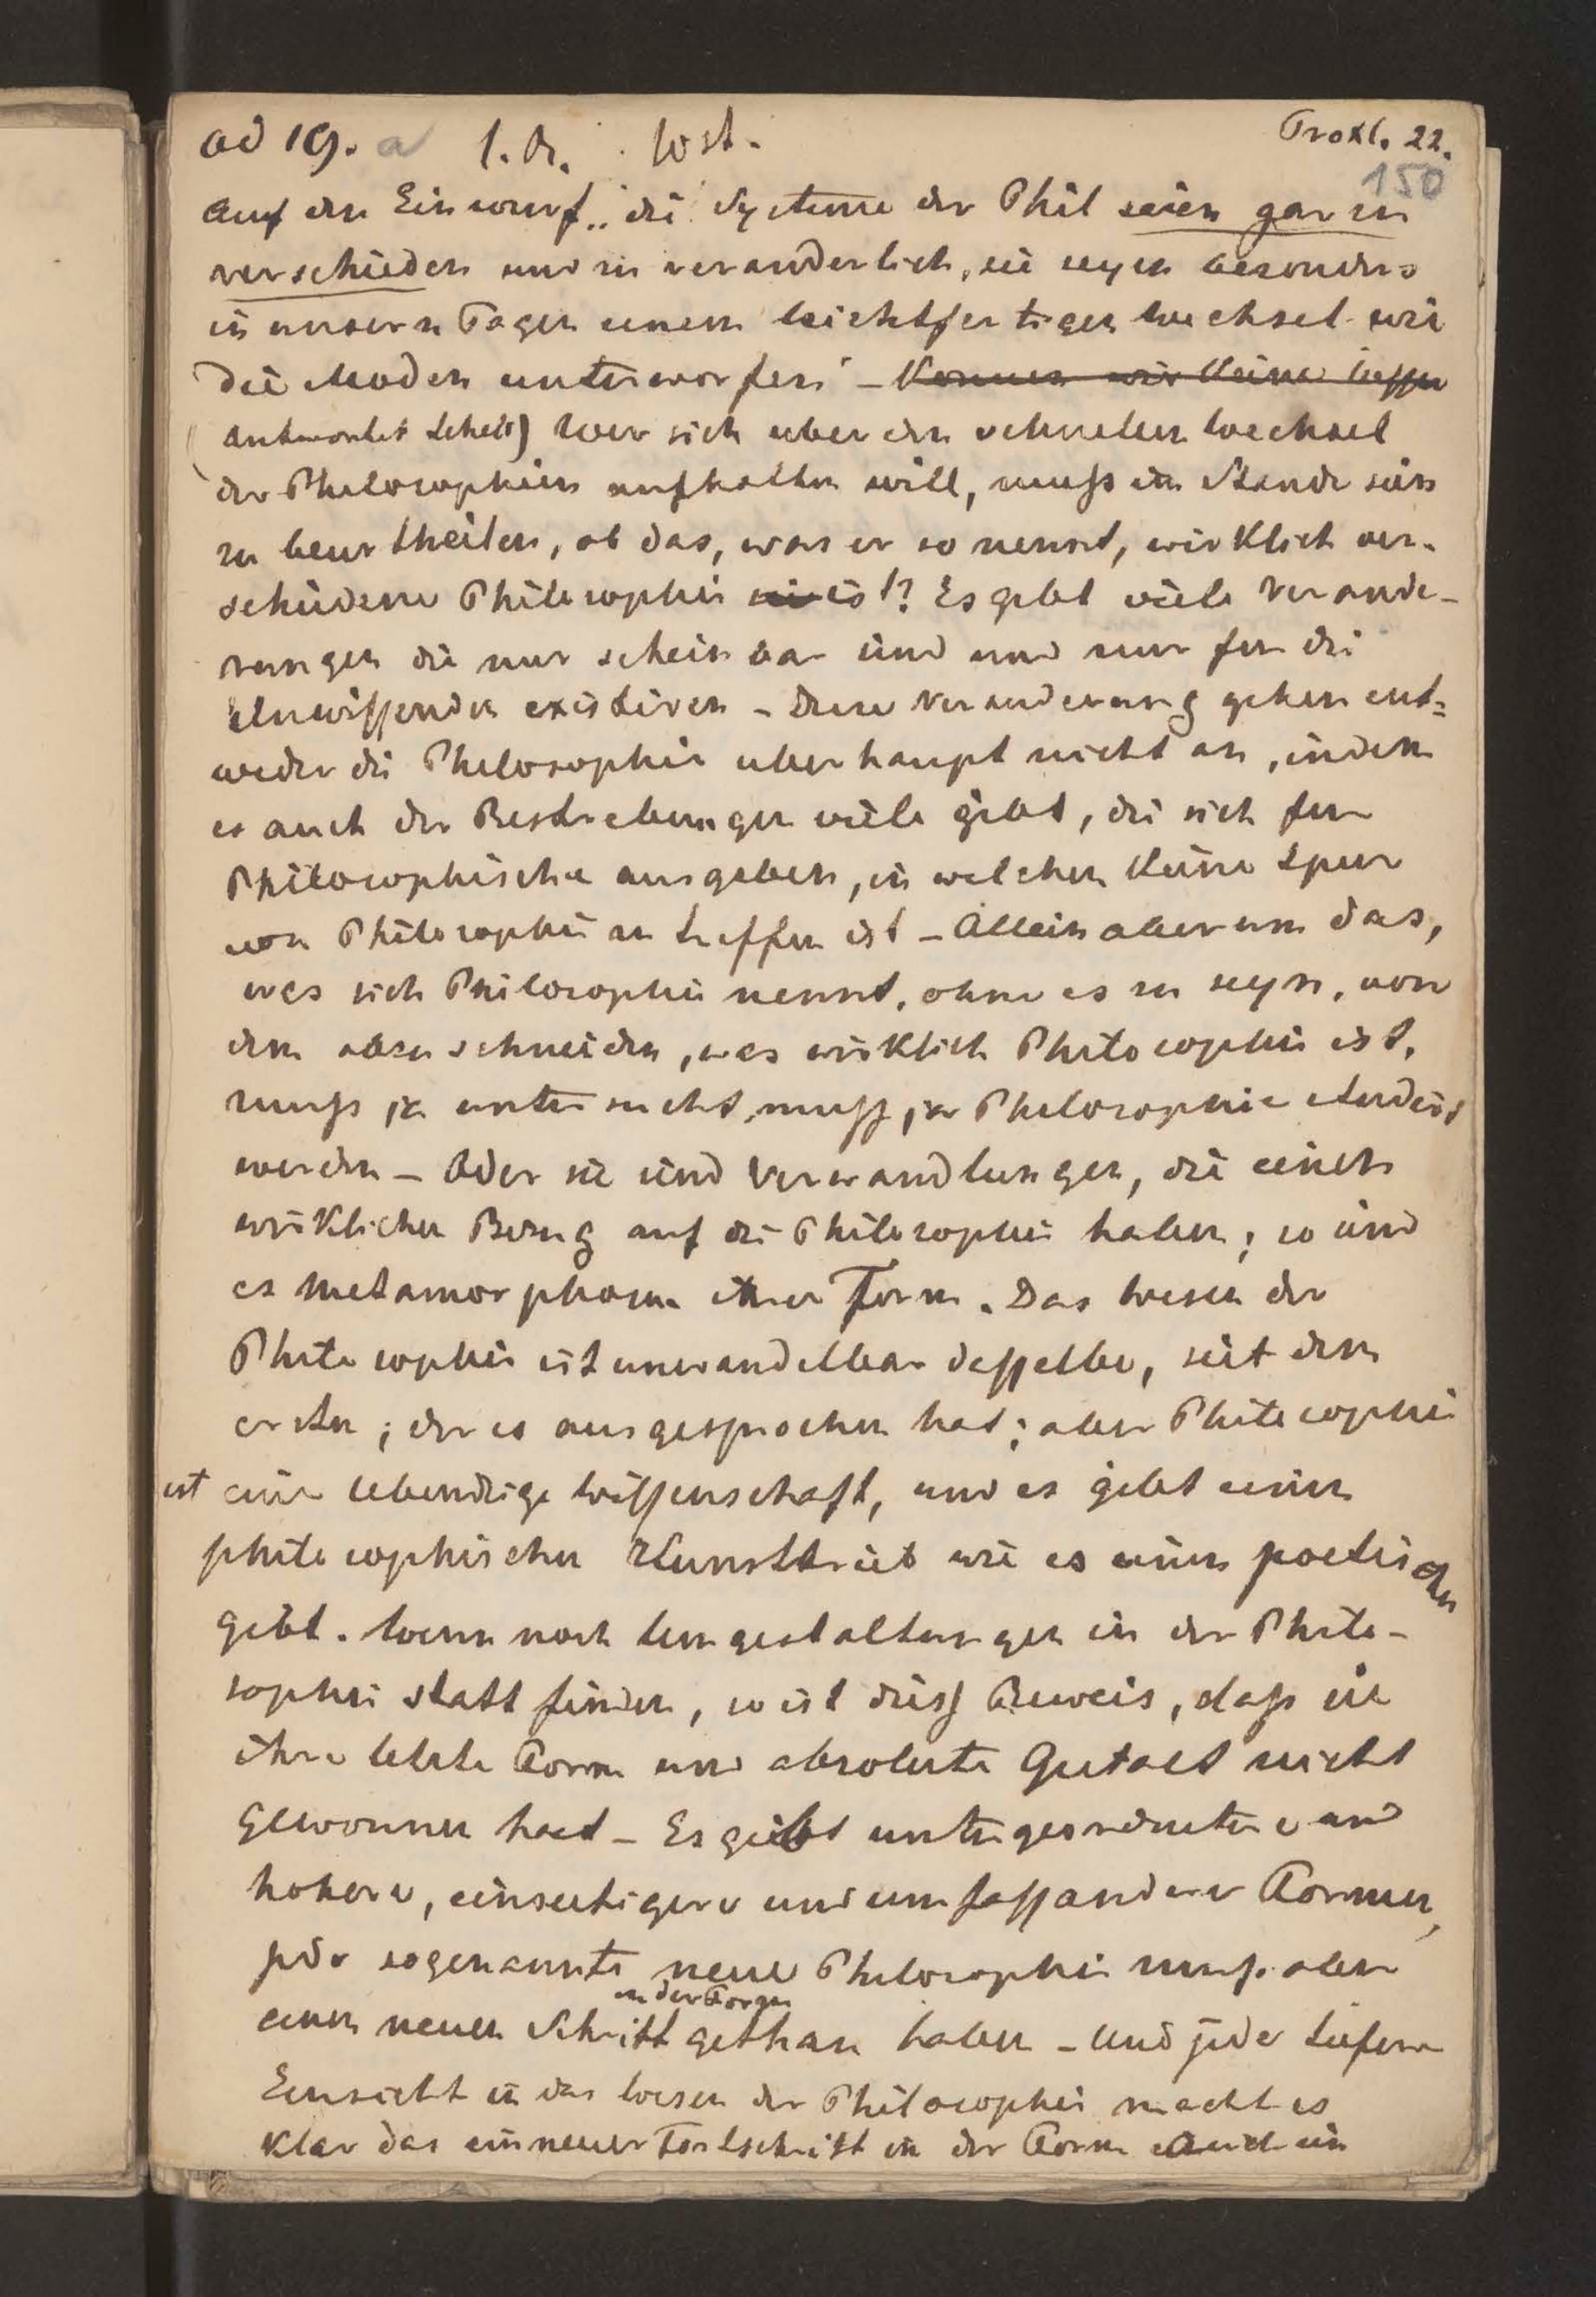 ad 19. a 1. Th. Wst. Troxl. 22.
150
Auf den Einwurf „die Systeme der Phil seien gar zu
verschieden und zu veranderlich, sie seyen besonders
in unsern Tagen einem leichtfertigen Wechsel wie
die Moden unterworfen" – Konnen wir keine bessre
(antwortet Schell) Wer sich uber den schnellen Wechsel
der Philosophien aufhalten will, muß im Stande sein
zu beurtheilen, ob das, was er so nennt, wirklich ver-
schiedene Philosophie ist? Es gebt viele Verande-
rungen die nur scheinbar sind und nur fur die
Unwissenden existiren – Diese Veranderung gehen ent=
weder die Philosophie uberhaupt nicht an, indem
es auch der Bestrebungen viele giebt, die sich fur
Philosophische ausgeben, in welchen keine Spur
von Philosophie zu treffen ist – Allein aber um das,
was sich Philosophie nennt, ohne es zu seyn, von
dem abzuschneiden, was wirklich Philosophie ist,
muß ja untersucht, muß ja Philosophie studirt
werden – Oder sie sind Verwandlungen, die einen
wirklichen Bezug auf die Philosophie haben, so sind
es Metamorphosen ihrer Form. Das Wesen der
Philosophie ist unwandelbar dasselbe, seit dem
ersten, der es ausgesprochen hat; aber Philosophie
ist eine lebendige Wissenschaft, und es giebt einen
philosophischen Kunsttrieb wie es einen poetischen
gibt. Wenn noch Umgestaltungen in der Philo-
sophie statt finden, so ist diess Beweis, daß sie
ihre letzte Form und absolute Gestalt nicht
gewonnen hat – Es giebt untergeordnetere und
hohere, einseitigere und umfassendere Formen,
jede sogenannte neue Philosophie muß aber
in der Form
einen neuen Schritt gethan haben – Und jede tiefere
Einsicht in das Wesen der Philosophie macht es
klar das ein neuer Fortschritt in der Form auch ein